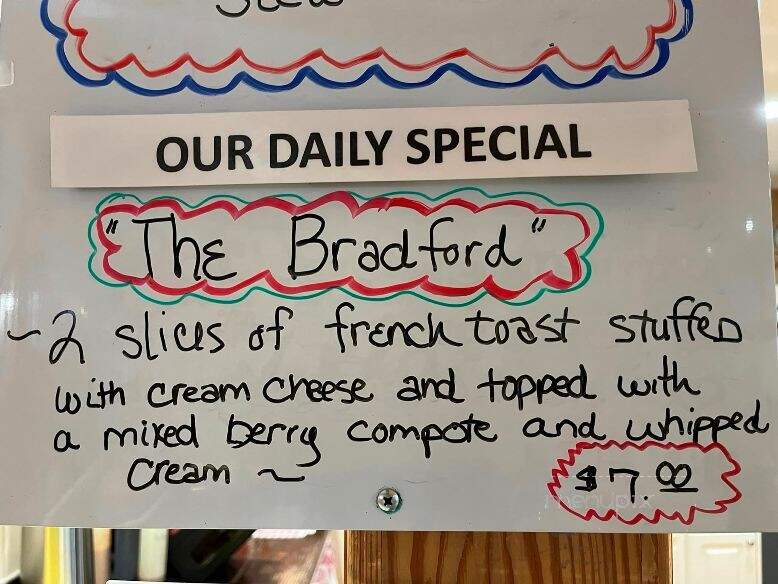 Stew
OUR DAILY SPECIAL
"The Bradford"
~2 slices of french toast stuffed
with cream cheese and topped with
a mixed berry compote and whipped
cream ~
$7.00
menupix